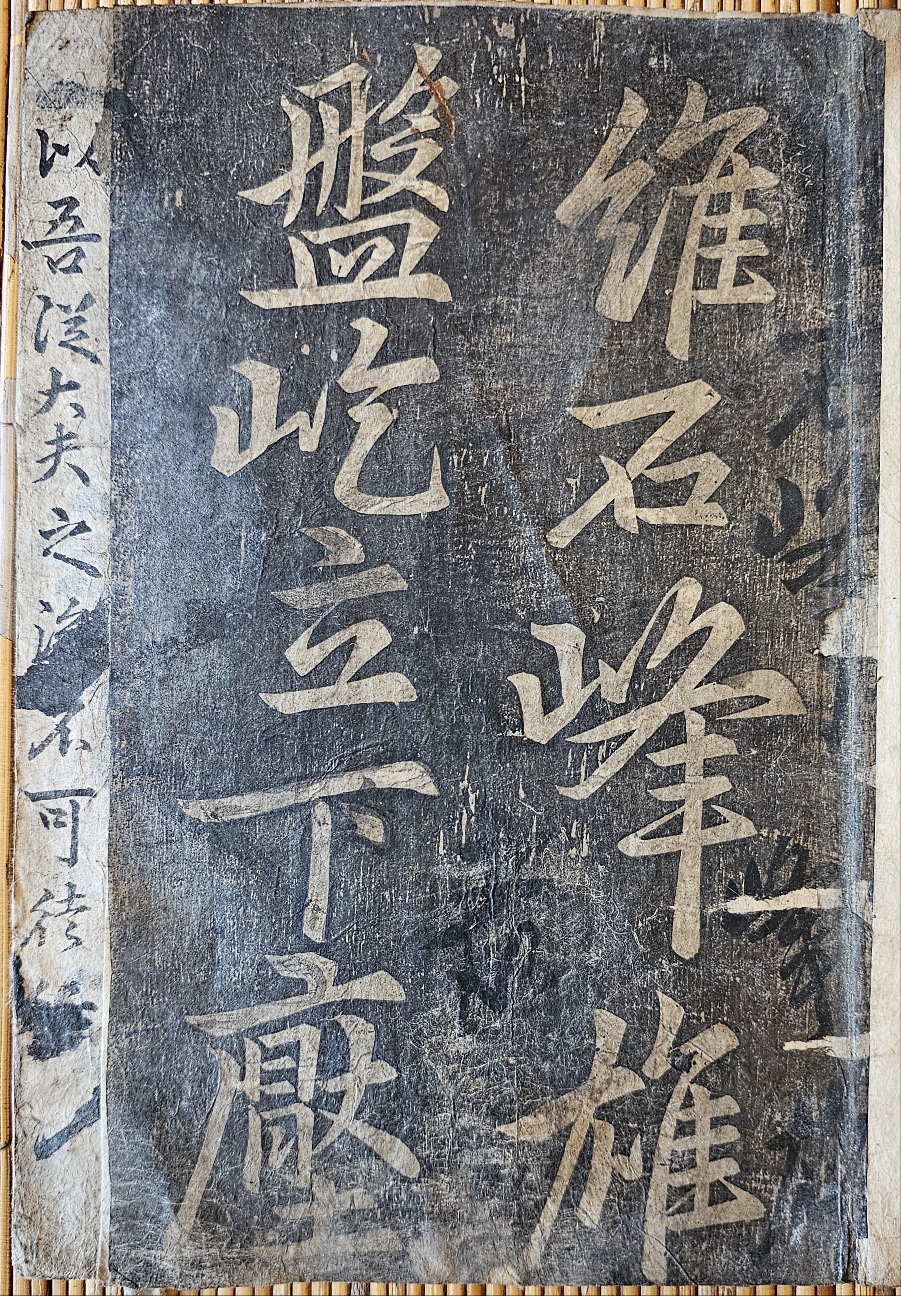 維石峰雄
盤屹立下壓
以吾從大夫之 不可徒